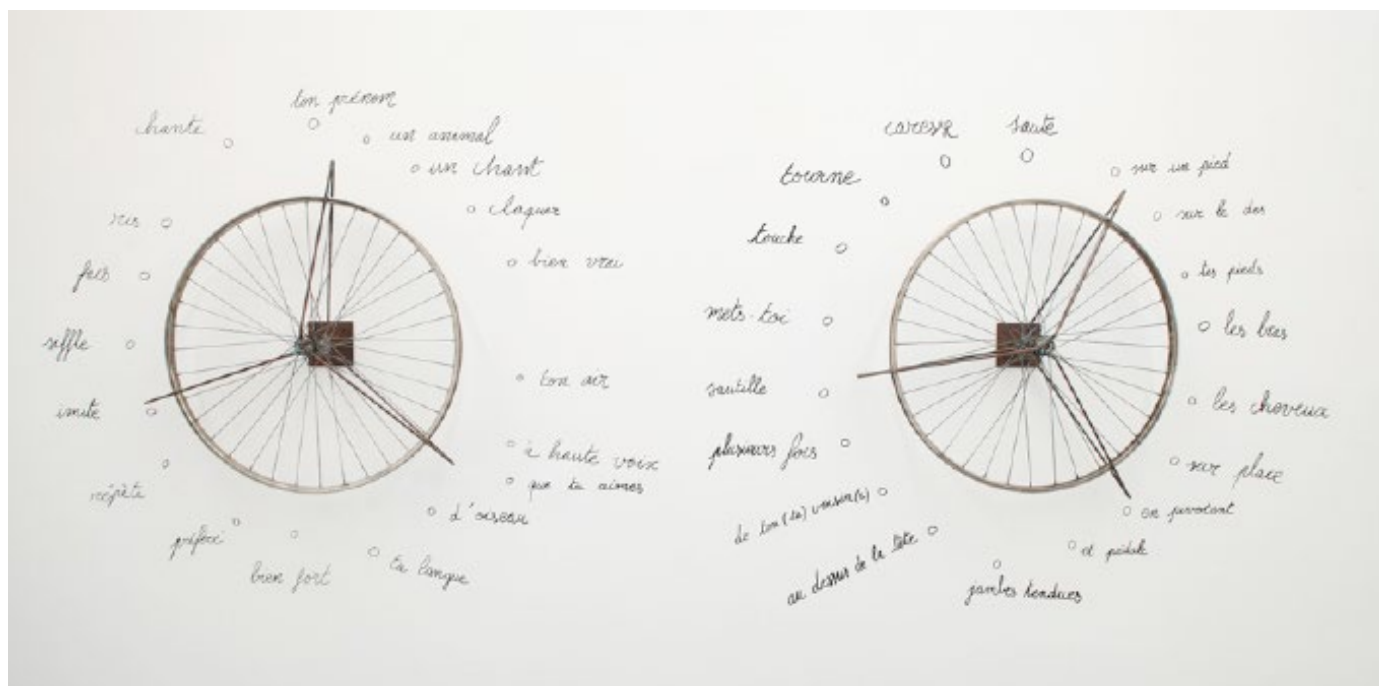 chante
ton prénom
un animal
un chant
claquer
bien vrai
ton air
à haute voix
que tu aimes
d'oiseau
ta langue
bien fort
préféré
répète
imite
siffle
fais
ris
caresse
saute
sur un pied
sur le dos
tes pieds
les bras
les cheveux
sur place
en pivotant
et pédale
jambes tendues
au dessus de la tête
de ton (ta) voisin(e)
plusieurs fois
sautille
mets-toi
touche
tourne